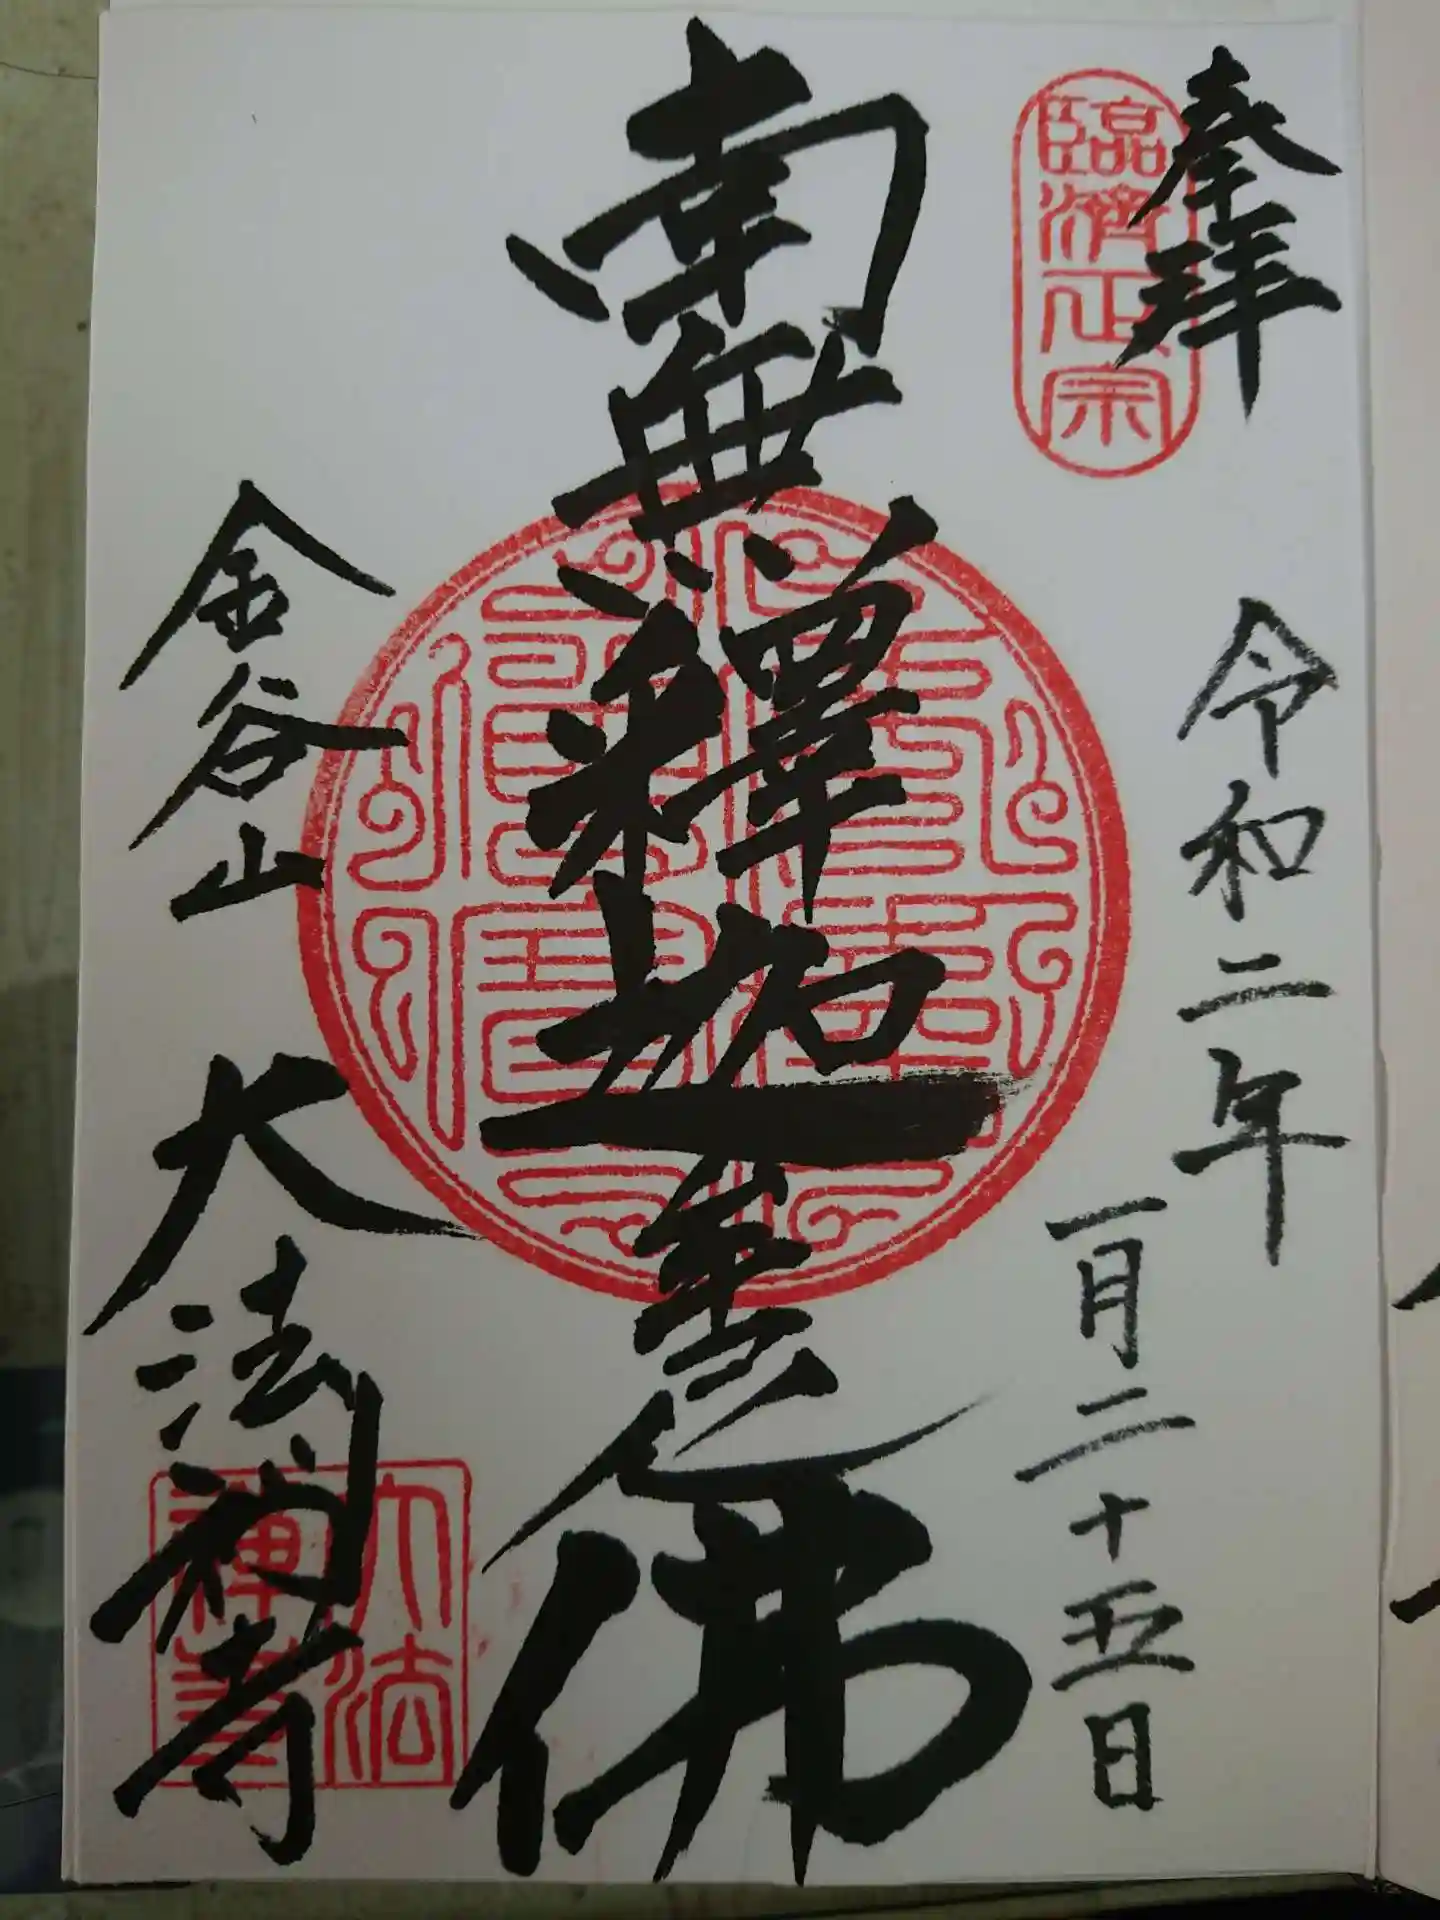 奉拝
臨済正宗
令和二年
一月二十五日
南無釋迦牟尼佛
金谷山
大法禅寺
大法
禅寺